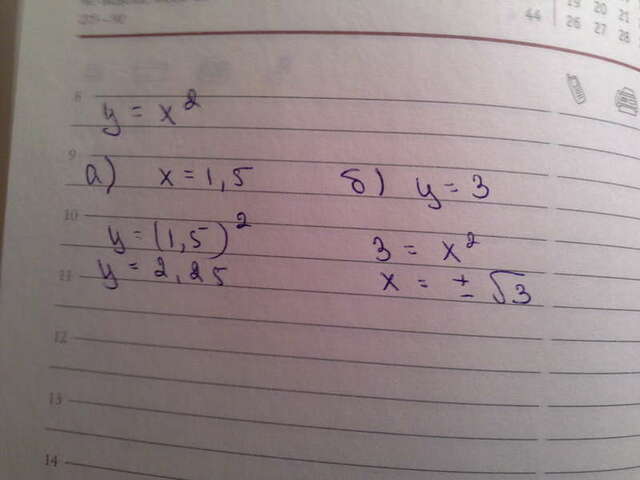 44
19 20 21
26 27 28
8
y = x²
9
а) x = 1,5 б) y = 3
10
y = (1,5)² 3 = x²
11
y = 2,25 x = ± √3
12
13
14